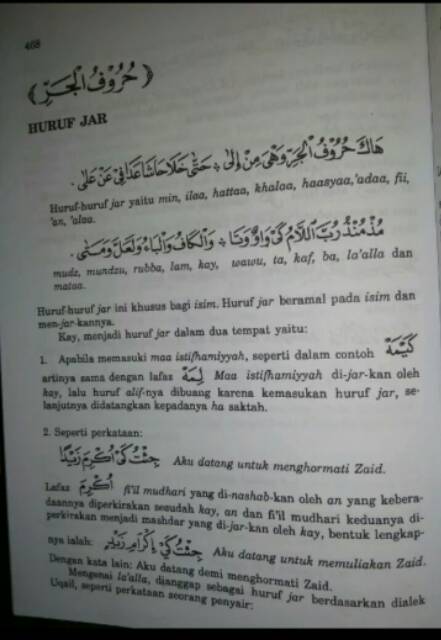 468
﴿ حُرُوْفُ الْجَرِّ ﴾
HURUF JAR
هَاكَ حُرُوْفَ الْجَرِّ وَهْيَ مِنْ اِلَىٰ * حَتَّى خَلَا حَاشَا عَدَا فِيْ عَنْ عَلَى .
Huruf-huruf jar yaitu min, ilaa, hattaa, khalaa, haasyaa, 'adaa, fii,
'an, 'alaa.
مُذْ مُنْذُ رُبَّ اللَّامُ كَيْ وَاوٌ وَتَا * وَالْكَافُ وَالْبَاءُ وَلَعَلَّ وَمَتٰى .
mudz, mundzu, rubba, lam, kay, wawu, ta, kaf, ba, la'alla dan
mataa.
Huruf-huruf jar ini khusus bagi isim. Huruf jar beramal pada isim dan
men-jar-kannya.
Kay, menjadi huruf jar dalam dua tempat yaitu:
1. Apabila memasuki maa istifhamiyyah, seperti dalam contoh كَيْمَهْ
artinya sama dengan lafaz لِمَهْ Maa istifhamiyyah di-jar-kan oleh
kay, lalu huruf alif-nya dibuang karena kemasukan huruf jar, se-
lanjutnya didatangkan kepadanya ha saktah.
2. Seperti perkataan:
جِئْتُ كَيْ اُكْرِمَ زَيْدًا Aku datang untuk menghormati Zaid.
Lafaz اُكْرِمَ fi'il mudhari yang di-nashab-kan oleh an yang kebera-
daannya diperkirakan sesudah kay, an dan fi'il mudhari keduanya di-
perkirakan menjadi mashdar yang di-jar-kan oleh kay, bentuk lengkap-
nya ialah: جِئْتُ كَيْ اِكْرَامِ زَيْدٍ Aku datang untuk memuliakan Zaid.
Dengan kata lain: Aku datang demi menghormati Zaid.
Mengenai la'alla, dianggap sebagai huruf jar berdasarkan dialek
Uqail, seperti perkataan seorang penyair: